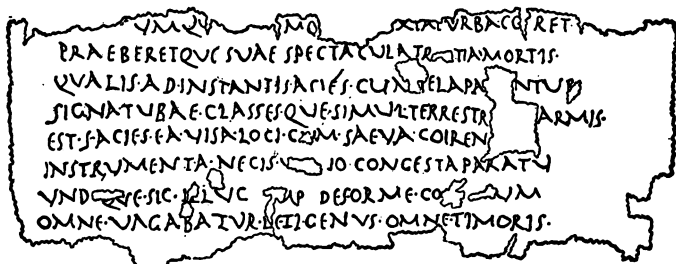 VMQV MQ ATATVRBA·CO RET·
PRAEBERETQVE SVAE SPECTACVLATR TIA·MORTIS·
QVALIS·AD·INSTANTIS·ACIES·CVM ELAPA NTVR
SIGNATVBAE·CLASSES·QVE·SIMVL·TERRESTR ARMIS·
EST·S·ACIES·EA·VISA·LOCI·CVM·SAEVA·COIREN
INSTRVMENTA·NECIS·V IO·CONGESTAPARATV
VND QVE·SIC·ILLVC MP DEFORME·CO VM
OMNE·VAGABATVR·LETI·GENVS·OMNETIMORIS·